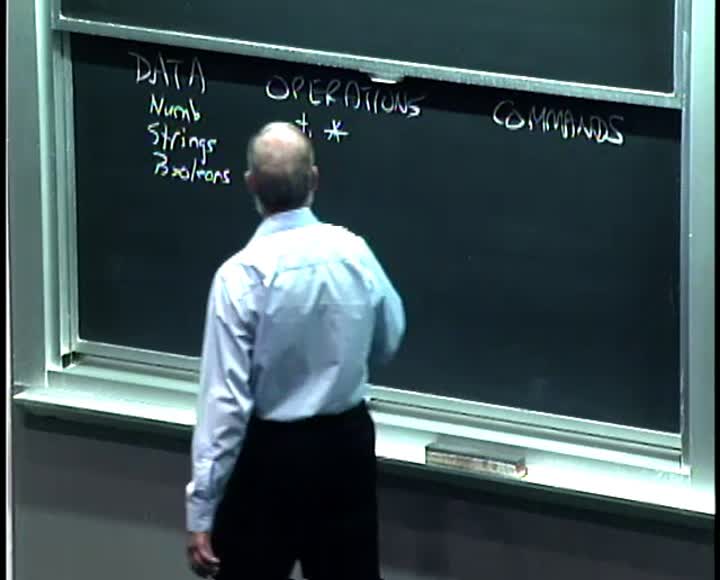 DATA
Numb
Strings
Booleans
OPERATIONS
+, *
COMMANDS